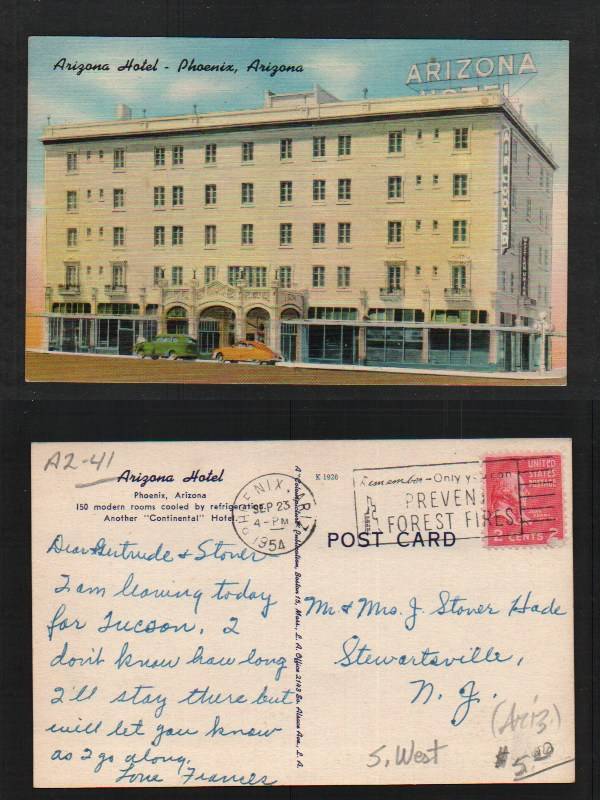 Arizona Hotel - Phoenix, Arizona
ARIZONA
HOTEL
A2-41
Arizona Hotel
Phoenix, Arizona
150 modern rooms cooled by refrigeration
Another "Continental" Hotel.
K 1926
PHOENIX,
SEP 23
4-PM
1954
Remember-Only you can
PREVENT
FOREST FIRES
UNITED
STATES
POSTAGE
2 CENTS 2
POST CARD
Dear Gertrude & Stover
I am leaving today
for Tucson. I
don't know how long
I'll stay there but
will let you know
as I go along.
Love Frances
A "Colourpicture" Publication, Boston 15, Mass., L. A. Office 2143 So. Alsace Ave., L. A.
Mr & Mrs. J. Stover Hade
Stewartsville,
N. J.
(Ariz.)
S. West
$5.00